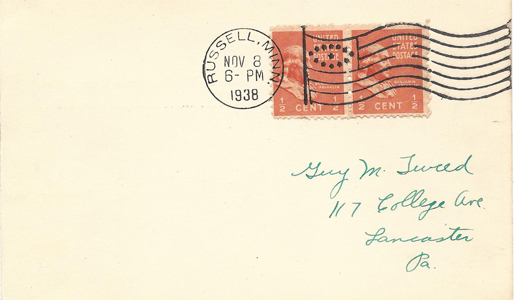 RUSSELL, MINN.
NOV 8
6-PM
1938
UNITED
STATES
POSTAGE
½ CENT ½
UNITED
STATES
POSTAGE
½ CENT ½
Guy M. Tweed
117 College Ave.
Lancaster
Pa.